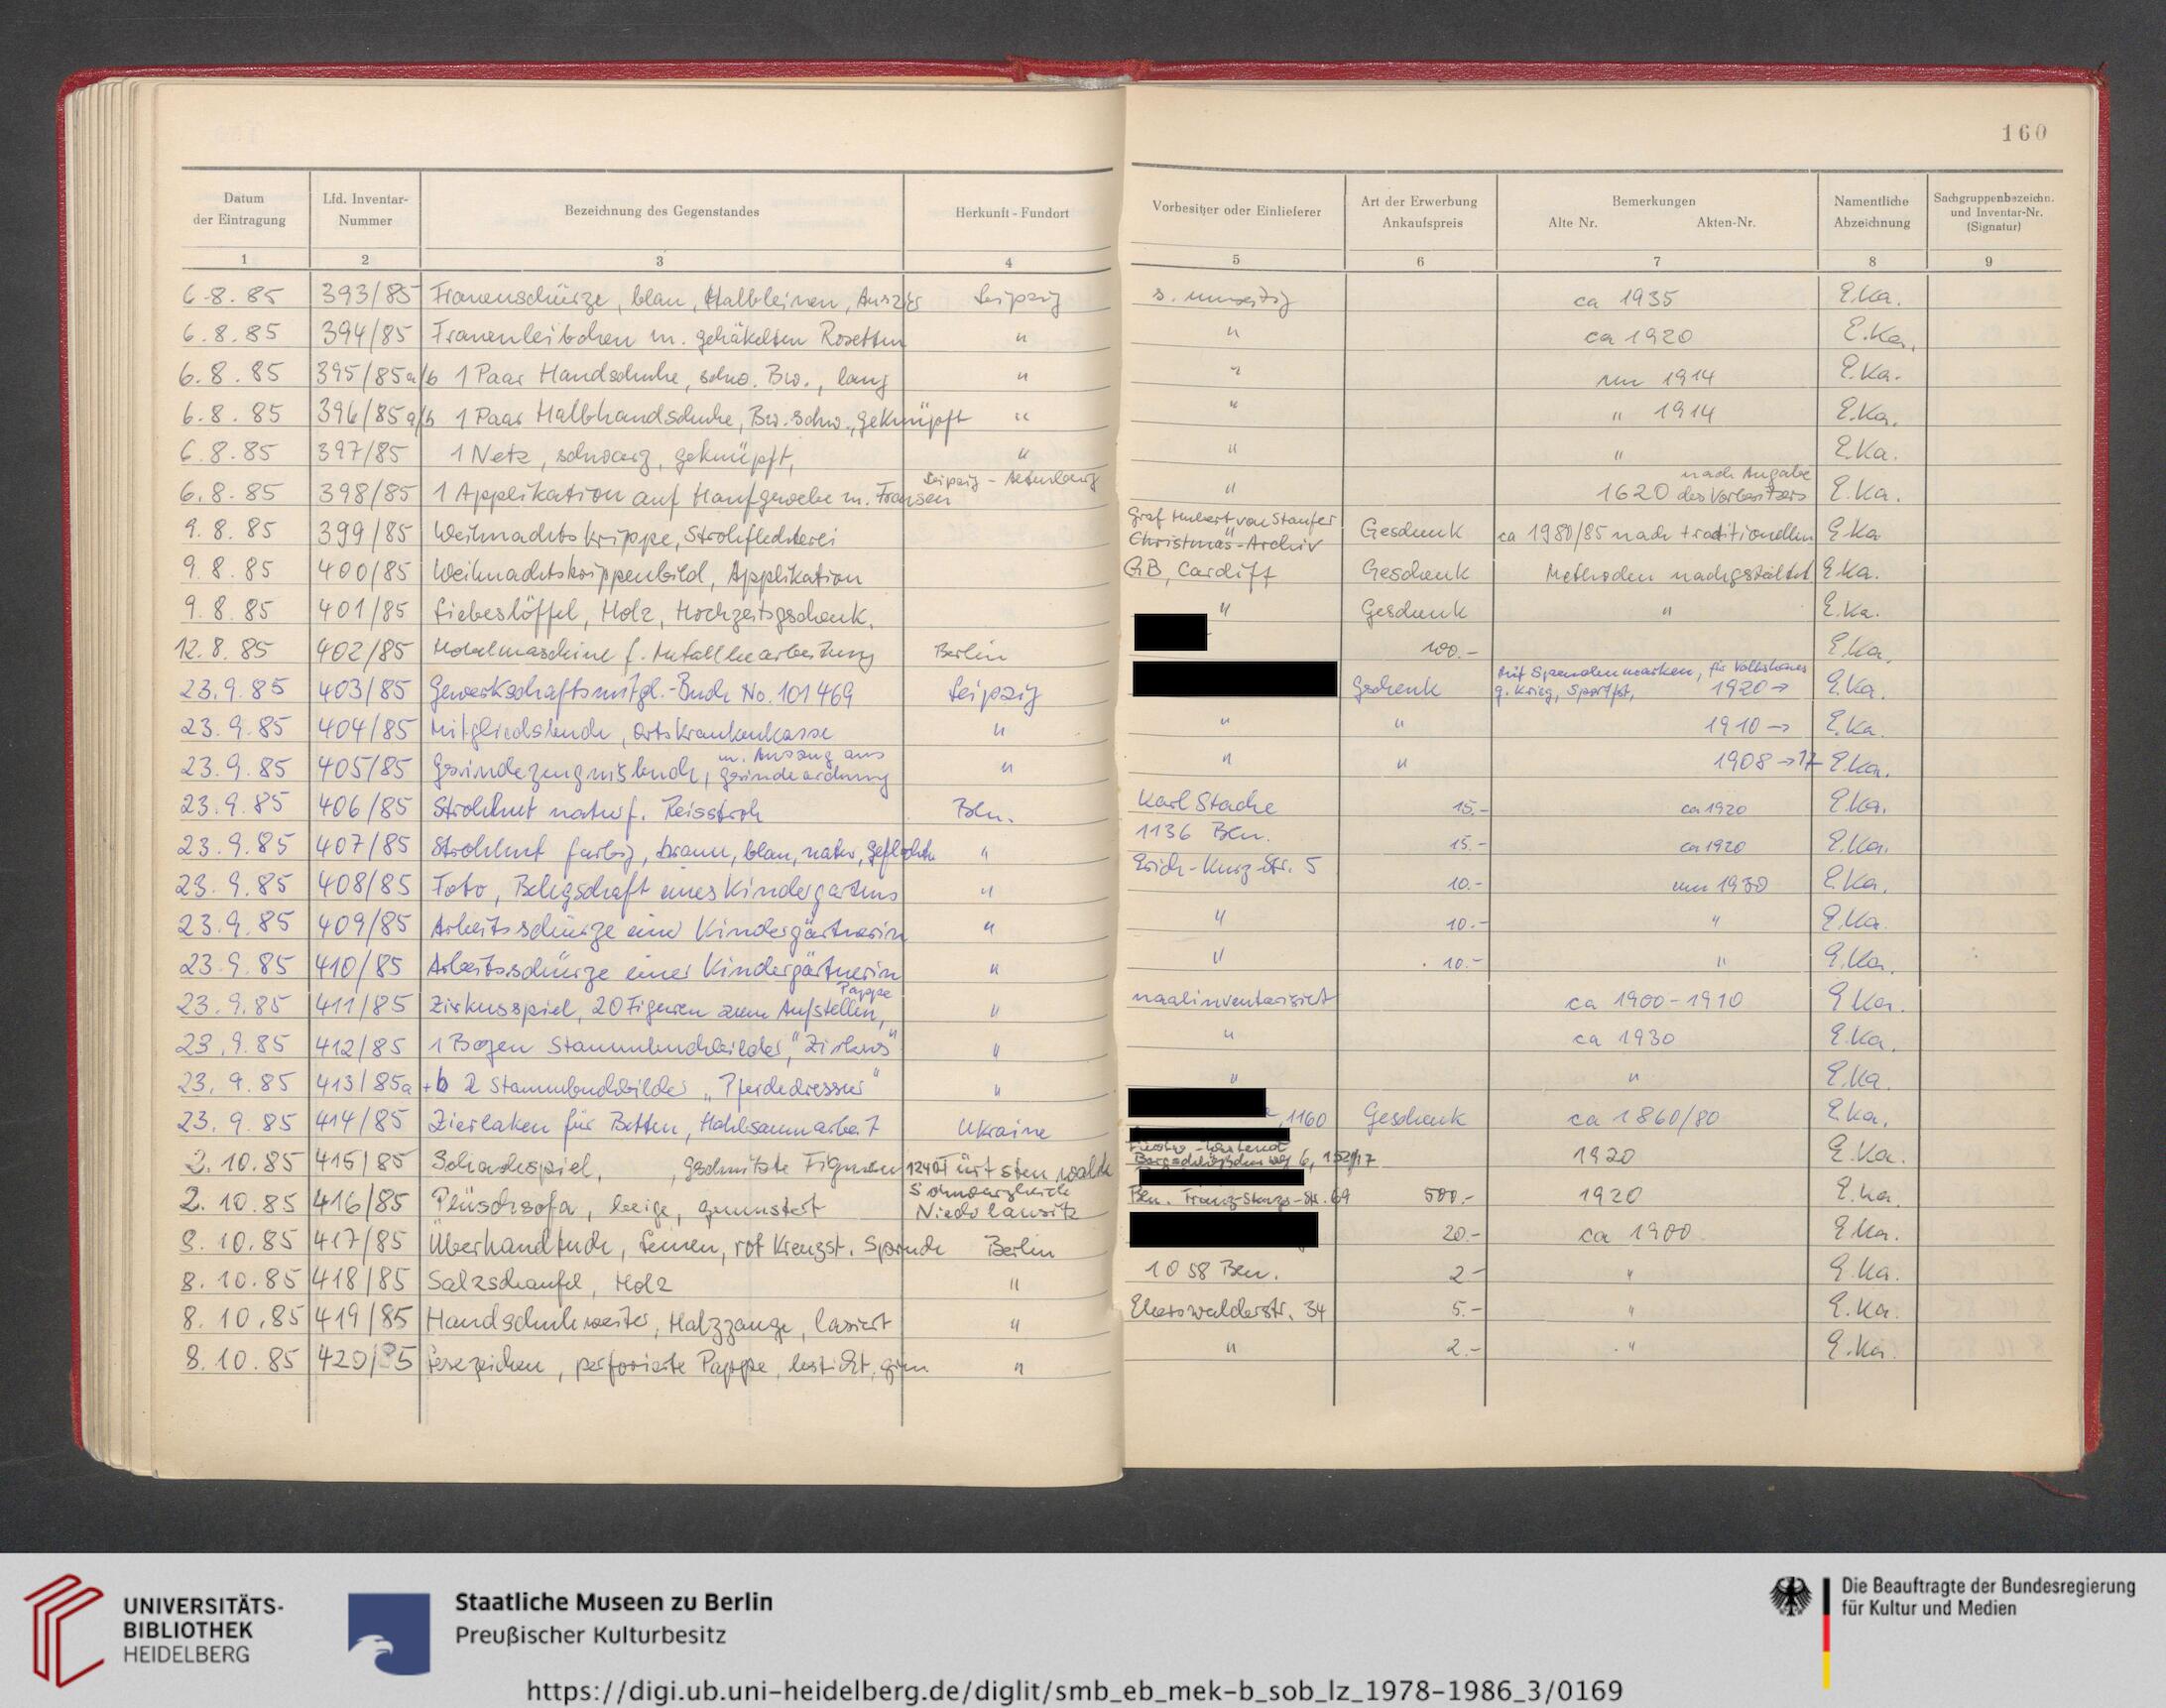 160
Datum der Eintragung | Lfd. Inventar-Nummer | Bezeichnung des Gegenstandes | Herkunft - Fundort | Vorbesitzer oder Einlieferer | Art der Erwerbung Ankaufspreis | Bemerkungen Alte Nr. Akten-Nr. | Namentliche Abzeichnung | Sachgruppenbezeichn. und Inventar-Nr. (Signatur)
1 | 2 | 3 | 4 | 5 | 6 | 7 | 8 | 9
6.8.85 | 393/85 | Frauenschürze, blau, Halbleinen, | Leipzig | s. umseitig | | ca 1935 | E.Ka.
6.8.85 | 394/85 | Frauenleibchen m. gehäkelten Rosetten | " | " | | ca 1920 | E.Ka.
6.8.85 | 395/85a/b | 1 Paar Handschuhe, schw. Bw., lang | " | " | | um 1914 | E.Ka.
6.8.85 | 396/85a/b | 1 Paar Halbhandschuhe, Bw. schw., geknüpft | " | " | | " 1914 | E.Ka.
6.8.85 | 397/85 | 1 Netz, schwarz, geknüpft, | " | " | | " | E.Ka.
6.8.85 | 398/85 | 1 Applikation auf Hanfgewebe m. Fransen | Leipzig - Altenburg | " | | 1620 nach Angabe des Vorbesitzers | E.Ka.
9.8.85 | 399/85 | Weihnachtskrippe, Strohflechterei | | Graf Hubert von Staufer Christmas-Archiv | Geschenk | ca 1980/85 nach traditionellen | E.Ka
9.8.85 | 400/85 | Weihnachtskrippenbild, Applikation | | GB, Cardiff | Geschenk | Methoden nachgestaltet | E.Ka.
9.8.85 | 401/85 | Liebeslöffel, Holz, Hochzeitsgschenk. | | " | Geschenk | " | E.Ka.
12.8.85 | 402/85 | Hobelmaschine f. Metallbearbeitung | Berlin | | 100.- | | E.Ka.
23.9.85 | 403/85 | Gewerkschaftsmitgl.-Buch No. 101469 | Leipzig | | Gschenk | mit Spendenmarken, für Volkshaus g. Krieg, Sportfst, 1920→ | E.Ka.
23.9.85 | 404/85 | Mitgliedsbuch, Ortskrankenkasse | " | " | " | 1910→ | E.Ka.
23.9.85 | 405/85 | Gesindezeugnisbuch, m. Auszug aus Gesindeordnung | " | " | " | 1908→17 | E.Ka.
23.9.85 | 406/85 | Strohhut naturf. Reisstroh | Bln. | Karl Stache | 15.- | ca 1920 | E.Ka.
23.9.85 | 407/85 | Strohhut farbig, braun, blau, natur, geflochten | " | 1136 Bln. | 15.- | ca 1920 | E.Ka.
23.9.85 | 408/85 | Foto, Belegschaft eines Kindergartens | " | Erich-Kurz-Str. 5 | 10.- | um 1930 | E.Ka.
23.9.85 | 409/85 | Arbeitsschürze einer Kindergärtnerin | " | " | 10.- | " | E.Ka.
23.9.85 | 410/85 | Arbeitsschürze einer Kindergärtnerin | " | " | 10.- | " | E.Ka.
23.9.85 | 411/85 | Zirkusspiel, 20 Figuren zum Aufstellen, Pappe | " | | | ca 1900-1910 | E.Ka.
23.9.85 | 412/85 | 1 Bogen Stammbuchbilder, "Zirkus" | " | " | | ca 1930 | E.Ka.
23.9.85 | 413/85a+b | 2 Stammbuchbilder „Pferdedressur" | " | " | | " | E.Ka.
23.9.85 | 414/85 | Zierlaken für Betten, Hohlsaumarbeit | Ukraine | , 1160 | Geschenk | ca 1860/80 | E.Ka.
2.10.85 | 415/85 | Schachspiel, , geschnitzte Figuren | 1240 Fürstenwalde | 6, | | 1920 | E.Ka.
2.10.85 | 416/85 | Plüschsofa, beige, gemustert | Niederlausitz | Bln. 69 | 500.- | 1920 | E.Ka.
8.10.85 | 417/85 | Überhandtuch, Leinen, rot Kreuzst. Spruch | Berlin | | 20.- | ca 1900 | E.Ka.
8.10.85 | 418/85 | Salzschaufel, Holz | " | 1058 Bln. | 2.- | " | E.Ka.
8.10.85 | 419/85 | Handschuhweiter, Holzzange, lasiert | " | Eberswalderstr. 34 | 5.- | " | E.Ka.
8.10.85 | 420/85 | Lesezeichen, perforierte Pappe, bestickt, grün | " | " | 2.- | " | E.Ka.
UNIVERSITÄTS-
BIBLIOTHEK
HEIDELBERG
Staatliche Museen zu Berlin
Preußischer Kulturbesitz
Die Beauftragte der Bundesregierung
für Kultur und Medien
https://digi.ub.uni-heidelberg.de/diglit/smb_eb_mek-b_sob_lz_1978-1986_3/0169